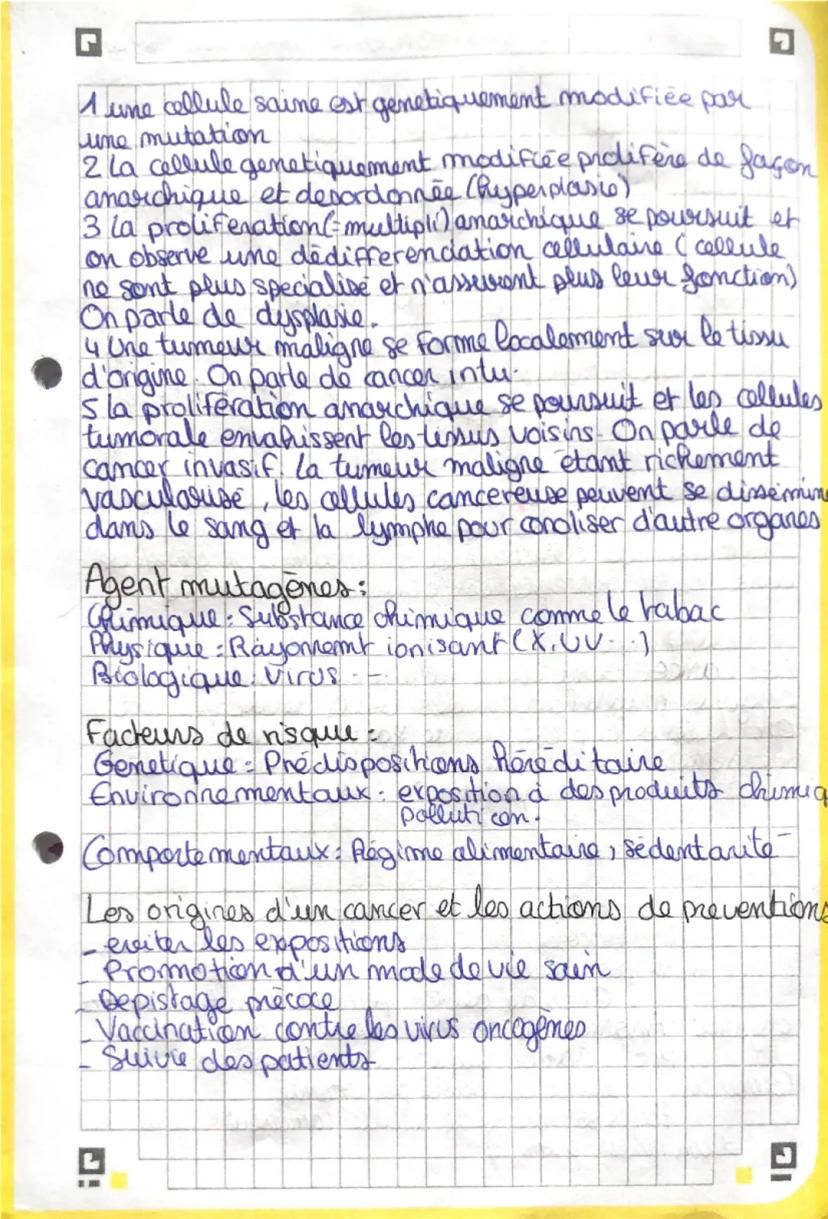 1 une cellule saine est genetiquement modifiée par
une mutation
2 la cellule genetiquement modifiée prolifère de façon
anarchique et desordonnée (hyperplasie)
3 la proliferation (=multipli) anarchique se poursuit et
on observe une dédifferenciation cellulaire (cellule
ne sont plus specialisé et n'assurent plus leur fonction)
On parle de dysplasie.
4 Une tumeur maligne se forme localement sur le tissu
d'origine. On parle de cancer intu.
5 la prolifération anarchique se poursuit et les cellules
tumorale envahissent les tissus voisins. On parle de
cancer invasif. la tumeur maligne étant richement
vascularisé, les cellules cancereuse peuvent se dissémin
dans le sang et la lymphe pour conoliser d'autre organes
Agent mutagènes :
Chimique : Substance chimique comme le tabac
Physique : Rayonnemt ionisant (X, UV...)
Biologique : Virus --
Facteurs de risque :
Genetique : Prédispositions héréditaire
Environnementaux : exposition à des produits chimiq
pollution.
Comportementaux : Régime alimentaire, sédentarité
Les origines d'un cancer et les actions de preventions
- eviter les expositions
- Promotion d'un mode de vie sain
- Depistage précoce
- Vaccination contre les virus oncogènes
- Suivie des patients